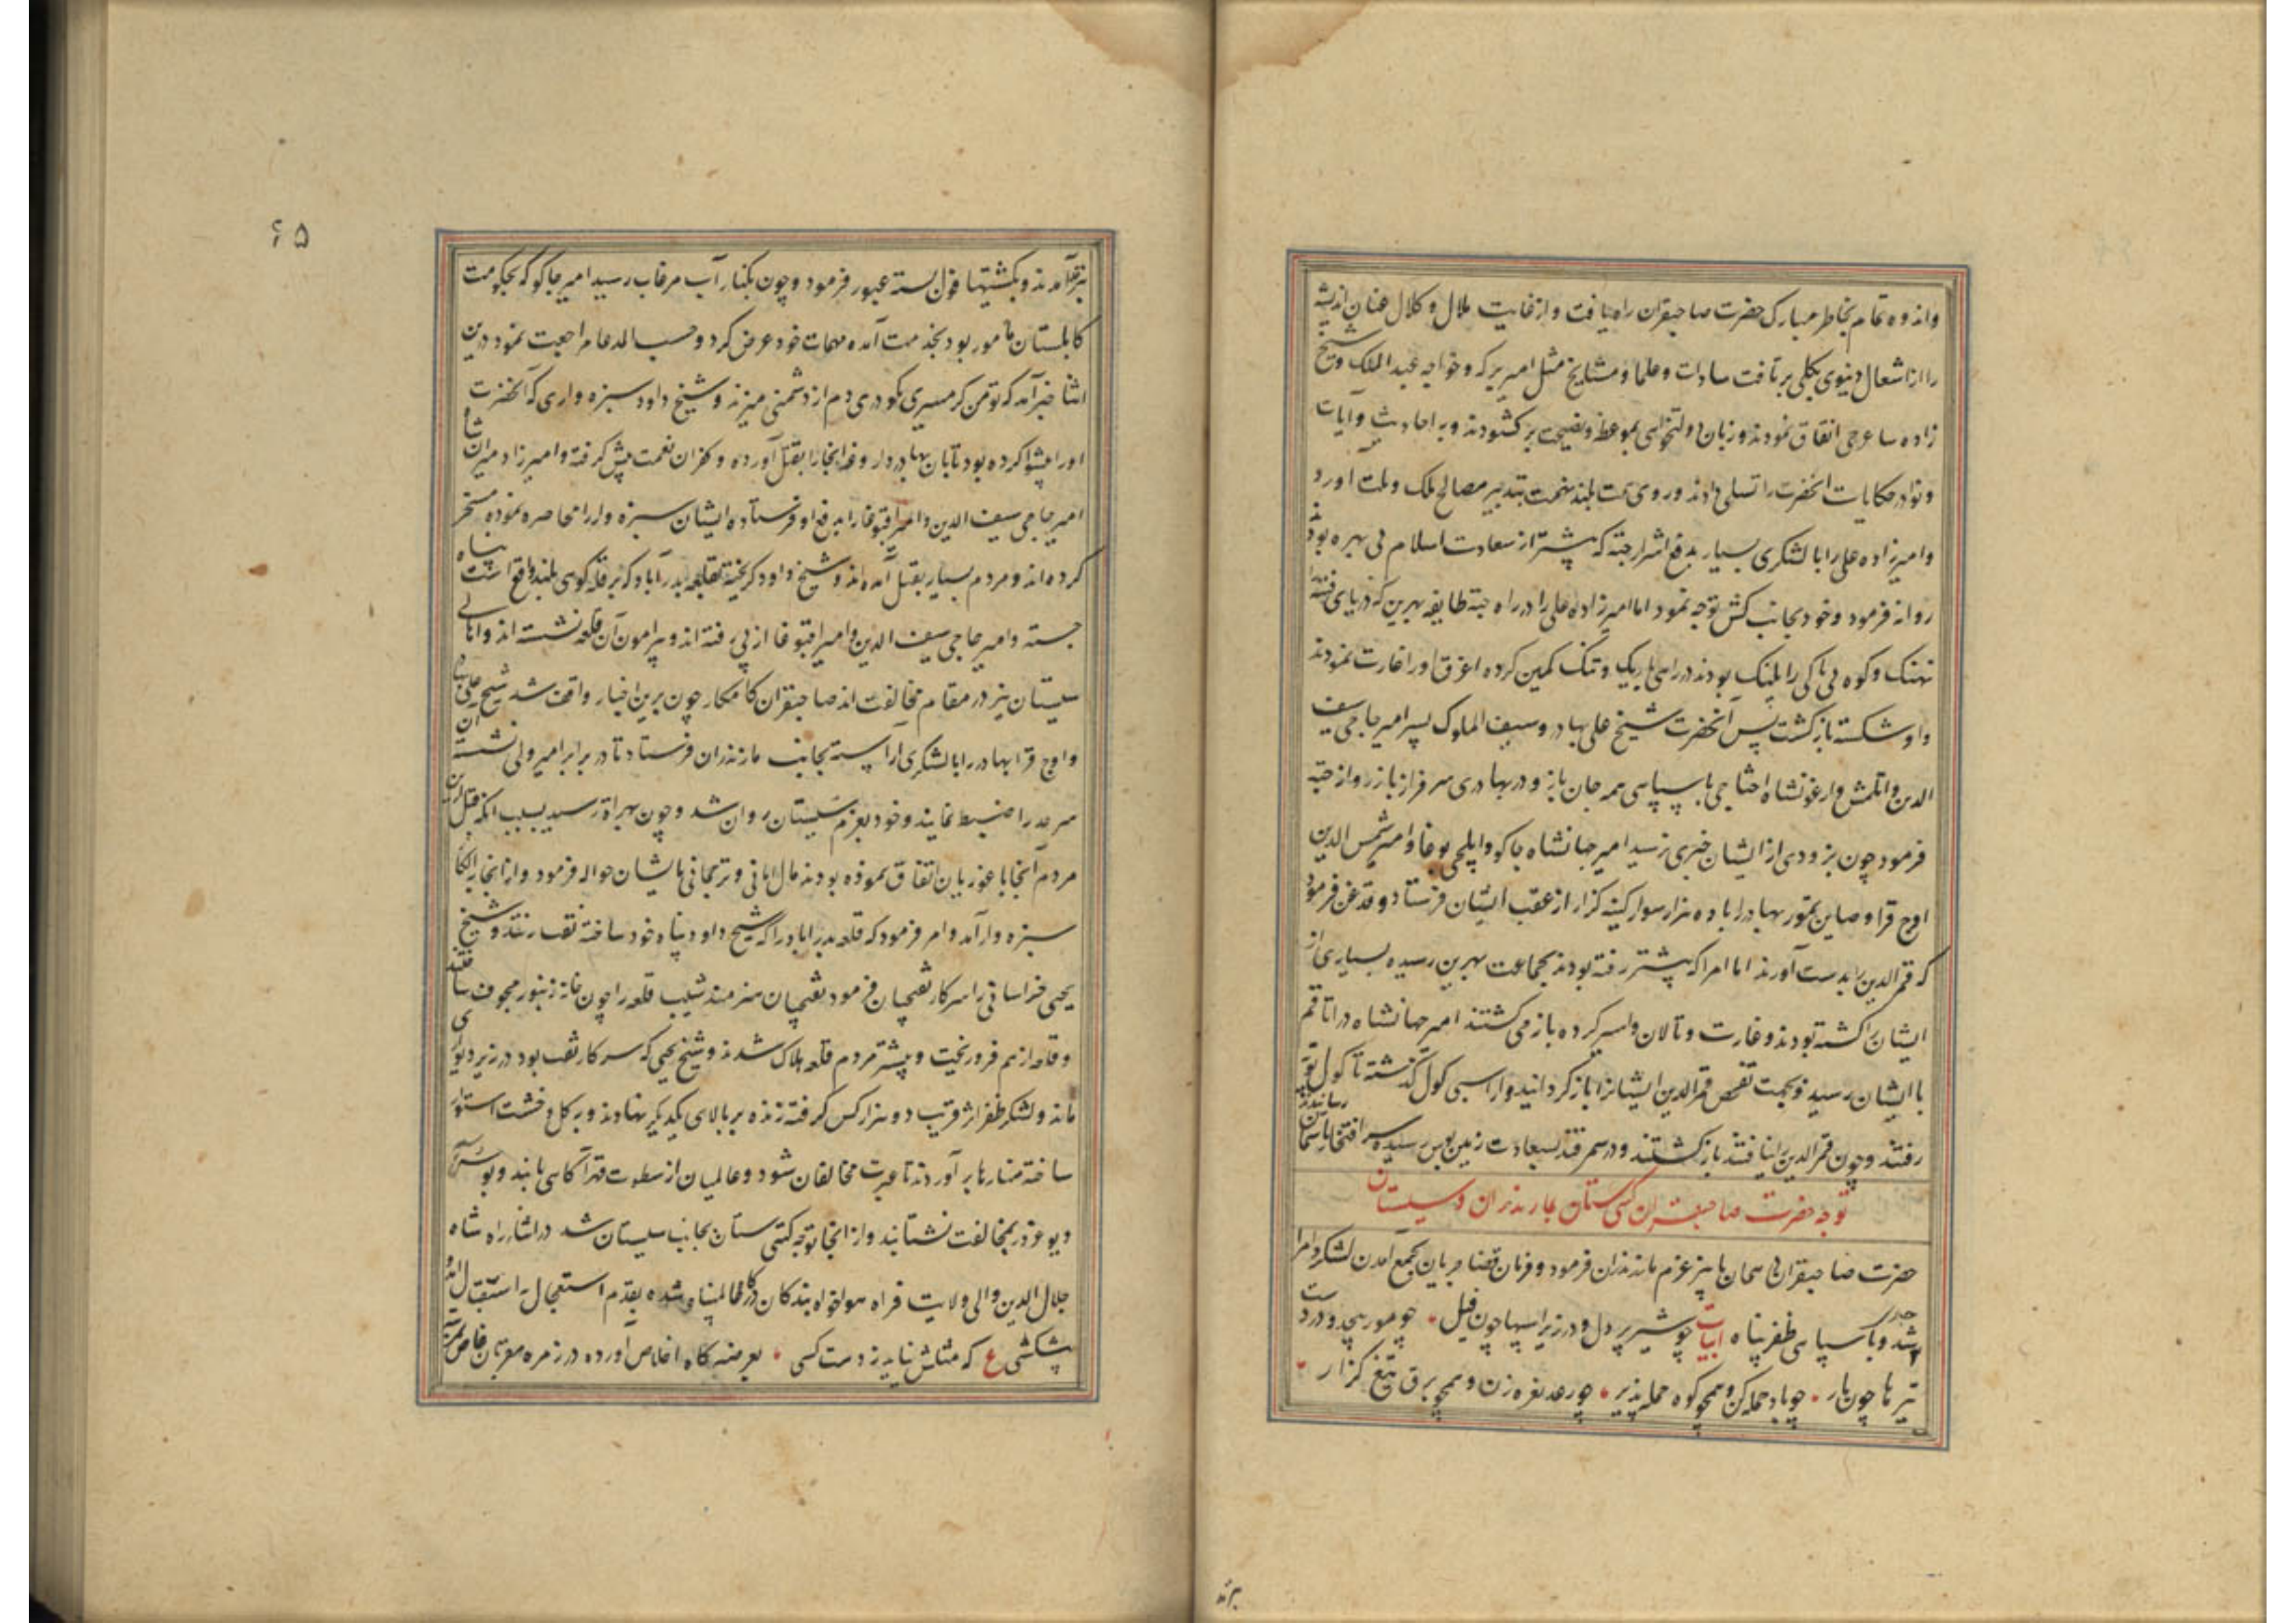 واندوه تمام بخاطر مبارک حضرت صاحبقران راه یافت و از غایت ملال و کلال عنان اندیشه
را از اشغال دنیوی بکلی برتافت سادات و علما و مشایخ مثل امیر برکه و خواجه عبد الملک و شیخ
زاده ساغرجی اتفاق نمودند و زبان دولتخواهی بموعظ و نصیحت برکشودند و به احادیث و آیات
و نوادر حکایات انحضرت را تسلی دادند و روی همت بلند نهمت بتدبیر مصالح ملک و ملت اورد
وامیرزاده علی را با لشکری بسیار بدفع اشرار جته که پیشتر از سعادت اسلام بی بهره بودند
روانه فرمود و خود بجانب کش توجه نمود اما امیرزاده علی را در راه جته طایفه بهرین که دریای فتنه را
نهنک و کوه بی باکی را پلنک بودند در راهی باریک و تنک کمین کرده اغرق او را غارت نمودند
واو شکسته بازکشت پس آنحضرت شیخ علی بهادر و سیف الملوک پسر امیر حاجی سیف
الدین و اتلمش و ارغونشاه اختاجی با سپاهی همه جان باز و در بهادری سرفراز باز روانه جته
فرمود چون بزودی از ایشان خبری نرسید امیر جهانشاه جاکو و ایلچی بوغا و امیر شمس الدین
اوج قرا و صاین تمور بهادر را با ده هزار سوار کینه کزار از عقب ایشان فرستاد و قدغن فرمود
که قمرالدین را بدست آورند اما امرا که پیشتر رفته بودند بجماعت بهرین رسیده بسیاری از
ایشان را کشته بودند و غارت و تالان و اسیر کرده باز می کشتند امیر جهانشاه در اتاقم
با ایشان رسید و بجهت تفحص قمرالدین ایشانرا باز کردانید و از ایسی کول کذشته تا کول توپه
رفتند و چون قمرالدین را نیافتند باز کشتند و در سمرقند بسعادت زمین بوس رسیده سر افتخار باسمان رسانیدند
توجه حضرت صاحبقران کیتی ستان بمازندران و سیستان
حضرت صاحبقران همان پاییز عزم مازندران فرمود و فرمان قضا جریان بجمع آمدن لشکر و امرا
شد و با سپاهی ظفر پناه ابیات چو شیر پر دل و در زیر اسپها چون فیل چو مور بیحد و در دست
تیرها چون مار چو باد حمله کن و همچو کوه حمله پذیر چو رعد نعره زن و همچو برق تیغ کزار
برمد
۶۵
ترمد آمدند و بکشتیها قول بسته عبور فرمود و چون بکنار آب مرغاب رسید امیر جاکو که بحکومت
کابلستان مامور بود بخدمت آمده مهمات خود عرض کرد و حسب المدعا مراجعت نمود درین
اثنا خبر آمد که تومن کرمسیری نکودری دم از دشمنی میزند و شیخ داود سبزه واری که آنحضرت
اورا پیشوا کرده بود تابان بهادر داروغه انجا را بقتل آورده و کفران نعمت پیش کرفته و امیرزاد میران شاه
امیر حاجی سیف الدین و امیر اقبوغا را بدفع او فرستاده ایشان سبزه وار را محاصره نموده مسخر
کرده اند و مردم بسیار بقتل آمده اند و شیخ داود کریخته بقلعه بدرآباد که بر قله کوهی بلند واقع است پناه
جسته و امیر حاجی سیف الدین و امیر اقبوغا از پی رفته اند و پیرامون آن قلعه نشسته اند و اهالی
سیستان نیز در مقام مخالفت اند صاحبقران کامکار چون برین اخبار واقف شد شیخ علی بهادر
و اوج قرا بهادر را با لشکری آراسته بجانب مازندران فرستاد تا در برابر امیر ولی نشسته آن
سرحد را ضبط نمایند و خود بعزم سیستان روان شد و چون بهراة رسید بسبب انکه قبل ازین
مردم آنجا با غوریان اتفاق نموده بودند مال امانی و ترجمانی بایشان حواله فرمود و از انجا بایلکا
سبزه وار آمد و امر فرمود که قلعه بدراباد را که شیخ داود پناه خود ساخته نقب زنند و شیخ
یحیی خراسانی را سرکار نقبچیان فرمود نقبچیان هنرمند شیب قلعه را چون خانه زنبور مجوف ساختند
و قلعه از هم فرو ریخت و بیشتر مردم قلعه هلاک شدند و شیخ یحیی که سرکار نقب بود در زیر دیواری
ماند و لشکر ظفر اثر قریب دو هزار کس کرفته زنده بر بالای یکدیکر نهادند و به کل و خشت استوار
ساخته منارها بر آوردند تا عبرت مخالفان شود و عالمیان از سطوت قهر آکاهی یابند و
و دیو غرور بمخالفت نشتابند و از انجا توجه کیتی ستان بجانب سیستان شد در اثنای راه شاه
جلال الدین والی ولایت فراه هواخواه بندکان درکاه عالمپناه شده بقدم استعجال استقبال
پیشکشی ع که مثلش نیاید ز دست کسی بعرضه کاه اخلاص آورده در زمره مقربان خاص